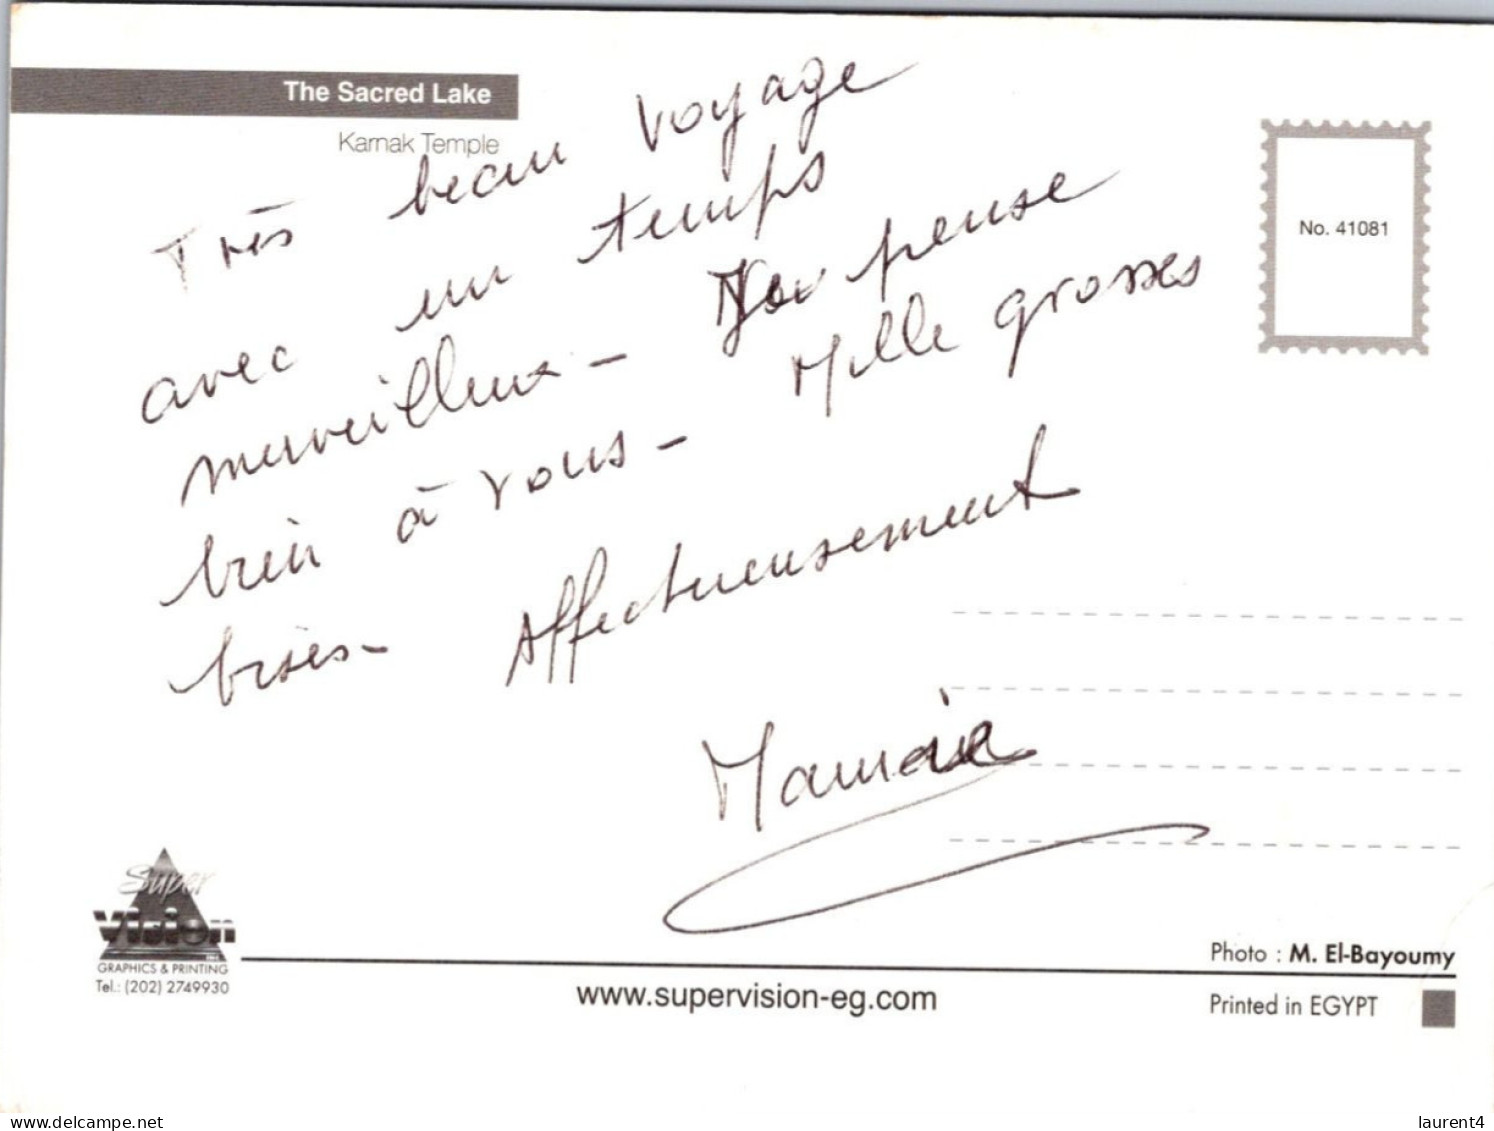 The Sacred Lake
Karnak Temple
Très beau voyage
avec un temps
merveilleux - pense
bien à vous - Mille grosses
bises - Affectueusement
No. 41081
Super
Vision
GRAPHICS & PRINTING
Tel.: (202) 2749930
www.supervision-eg.com
Photo : M. El-Bayoumy
Printed in EGYPT
www.delcampe.net
laurent4